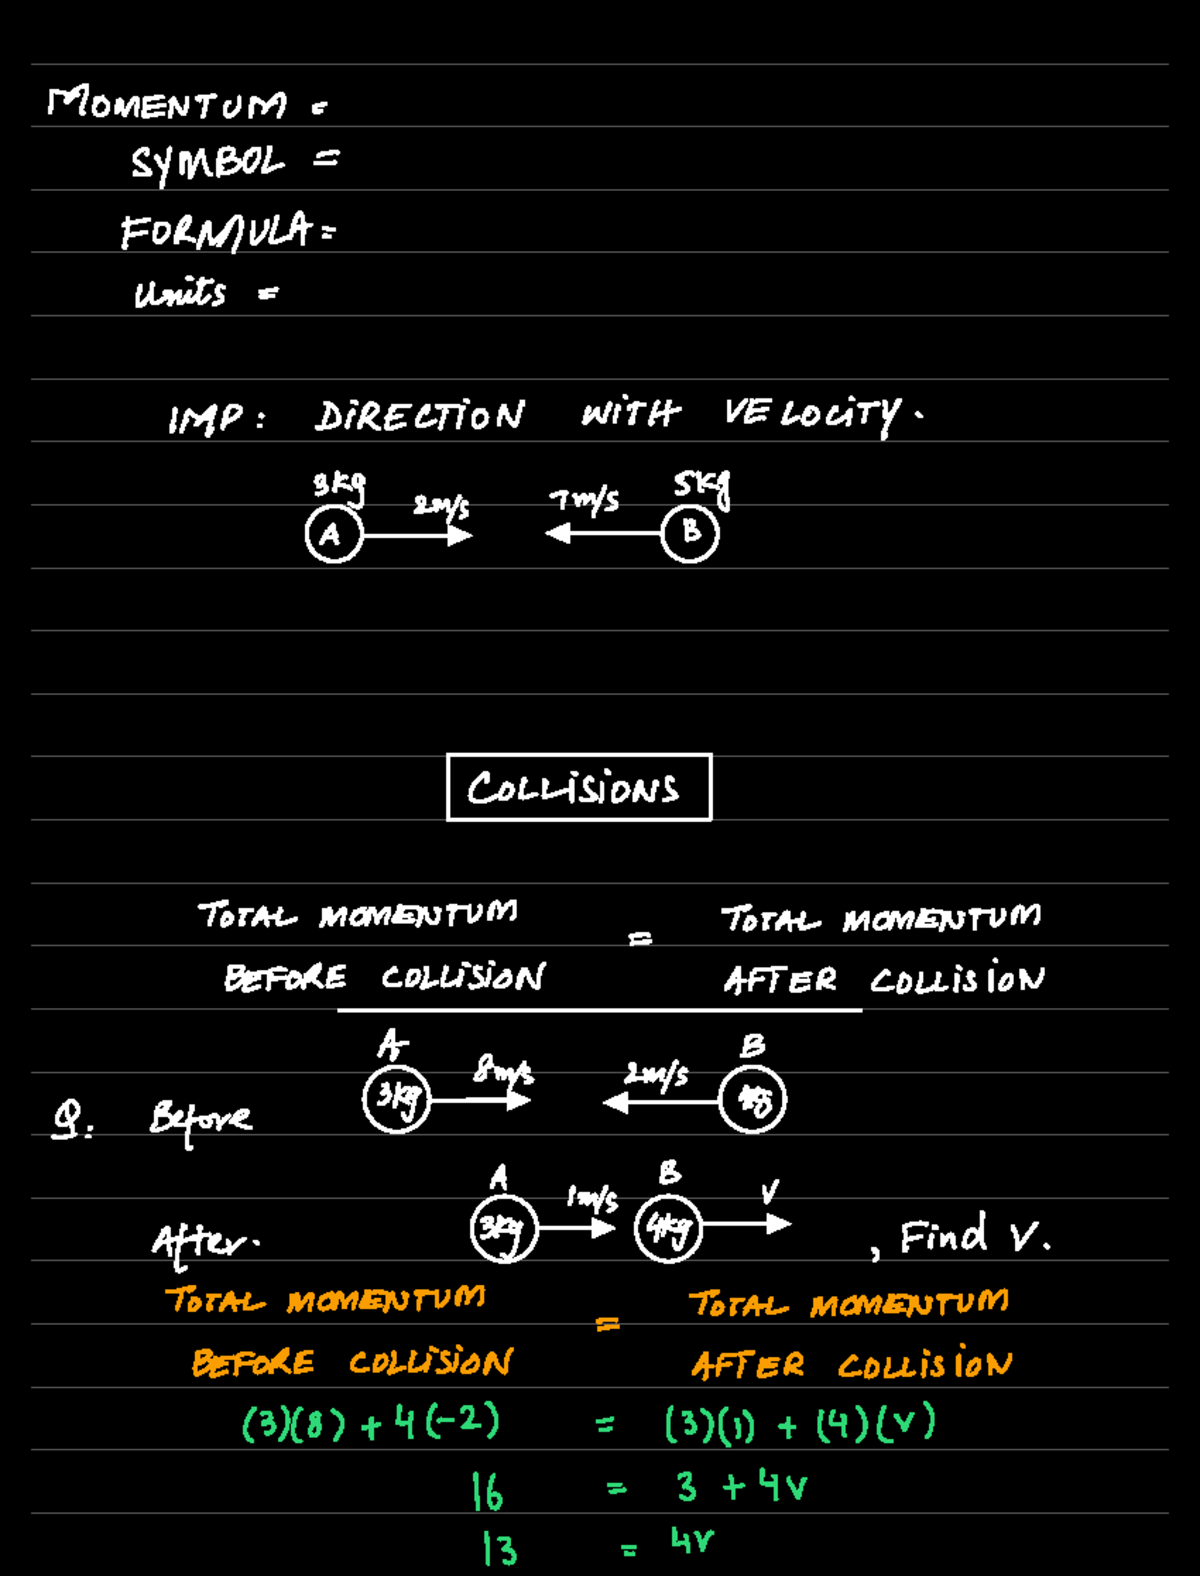 MOMENTUM =
SYMBOL =
FORMULA =
Units =
IMP: DIRECTION WITH VELOCITY.
3kg 2m/s 7m/s 5kg
A B
COLLISIONS
TOTAL MOMENTUM = TOTAL MOMENTUM
BEFORE COLLISION AFTER COLLISION
A 8m/s 2m/s B
Q. Before 3kg
A 1m/s B V
After. 3kg 4kg , Find V.
TOTAL MOMENTUM = TOTAL MOMENTUM
BEFORE COLLISION AFTER COLLISION
(3)(8) + 4(-2) = (3)(1) + (4)(v)
16 = 3 + 4v
13 = 4v